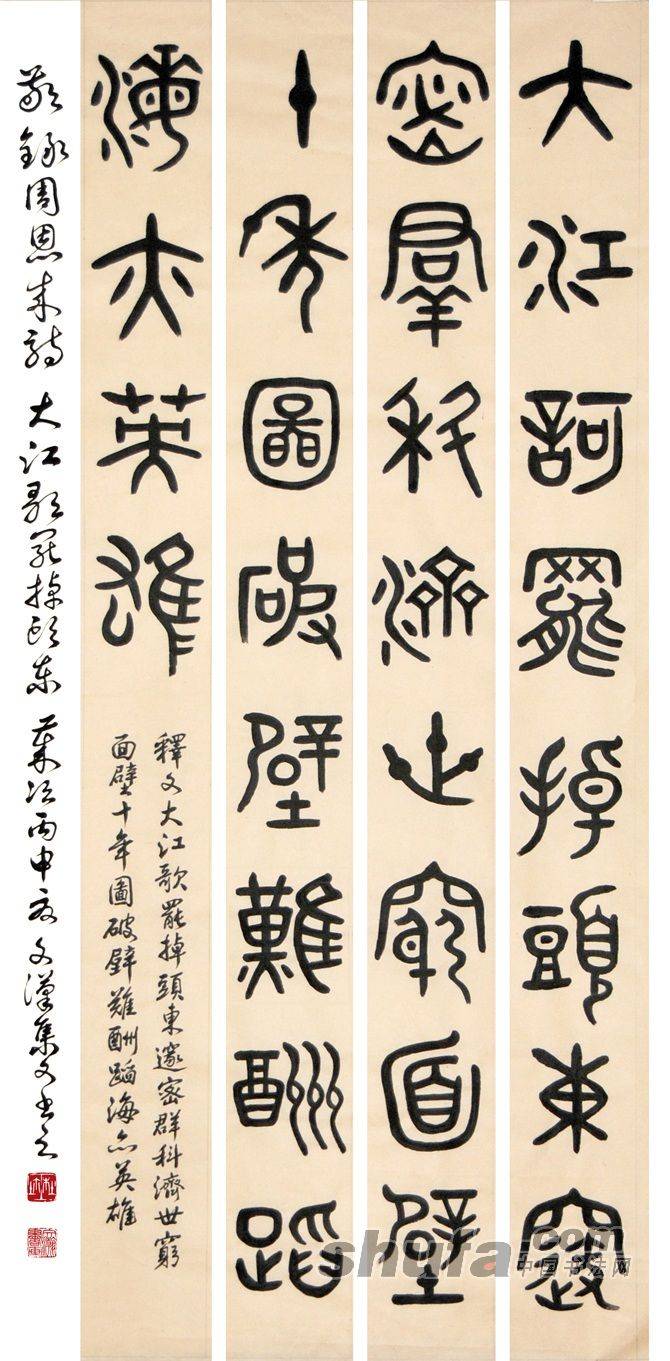 大江歌罷掉頭東邃
密群科濟世窮面壁
十年圖破壁難酬蹈
海亦英雄
釋文大江歌罷掉頭東邃密群科濟世窮
面壁十年圖破壁難酬蹈海亦英雄
敬錄周恩來詩 大江歌罷掉頭東 歲次丙申 文漢集文書之
shufa.com
中国书法网